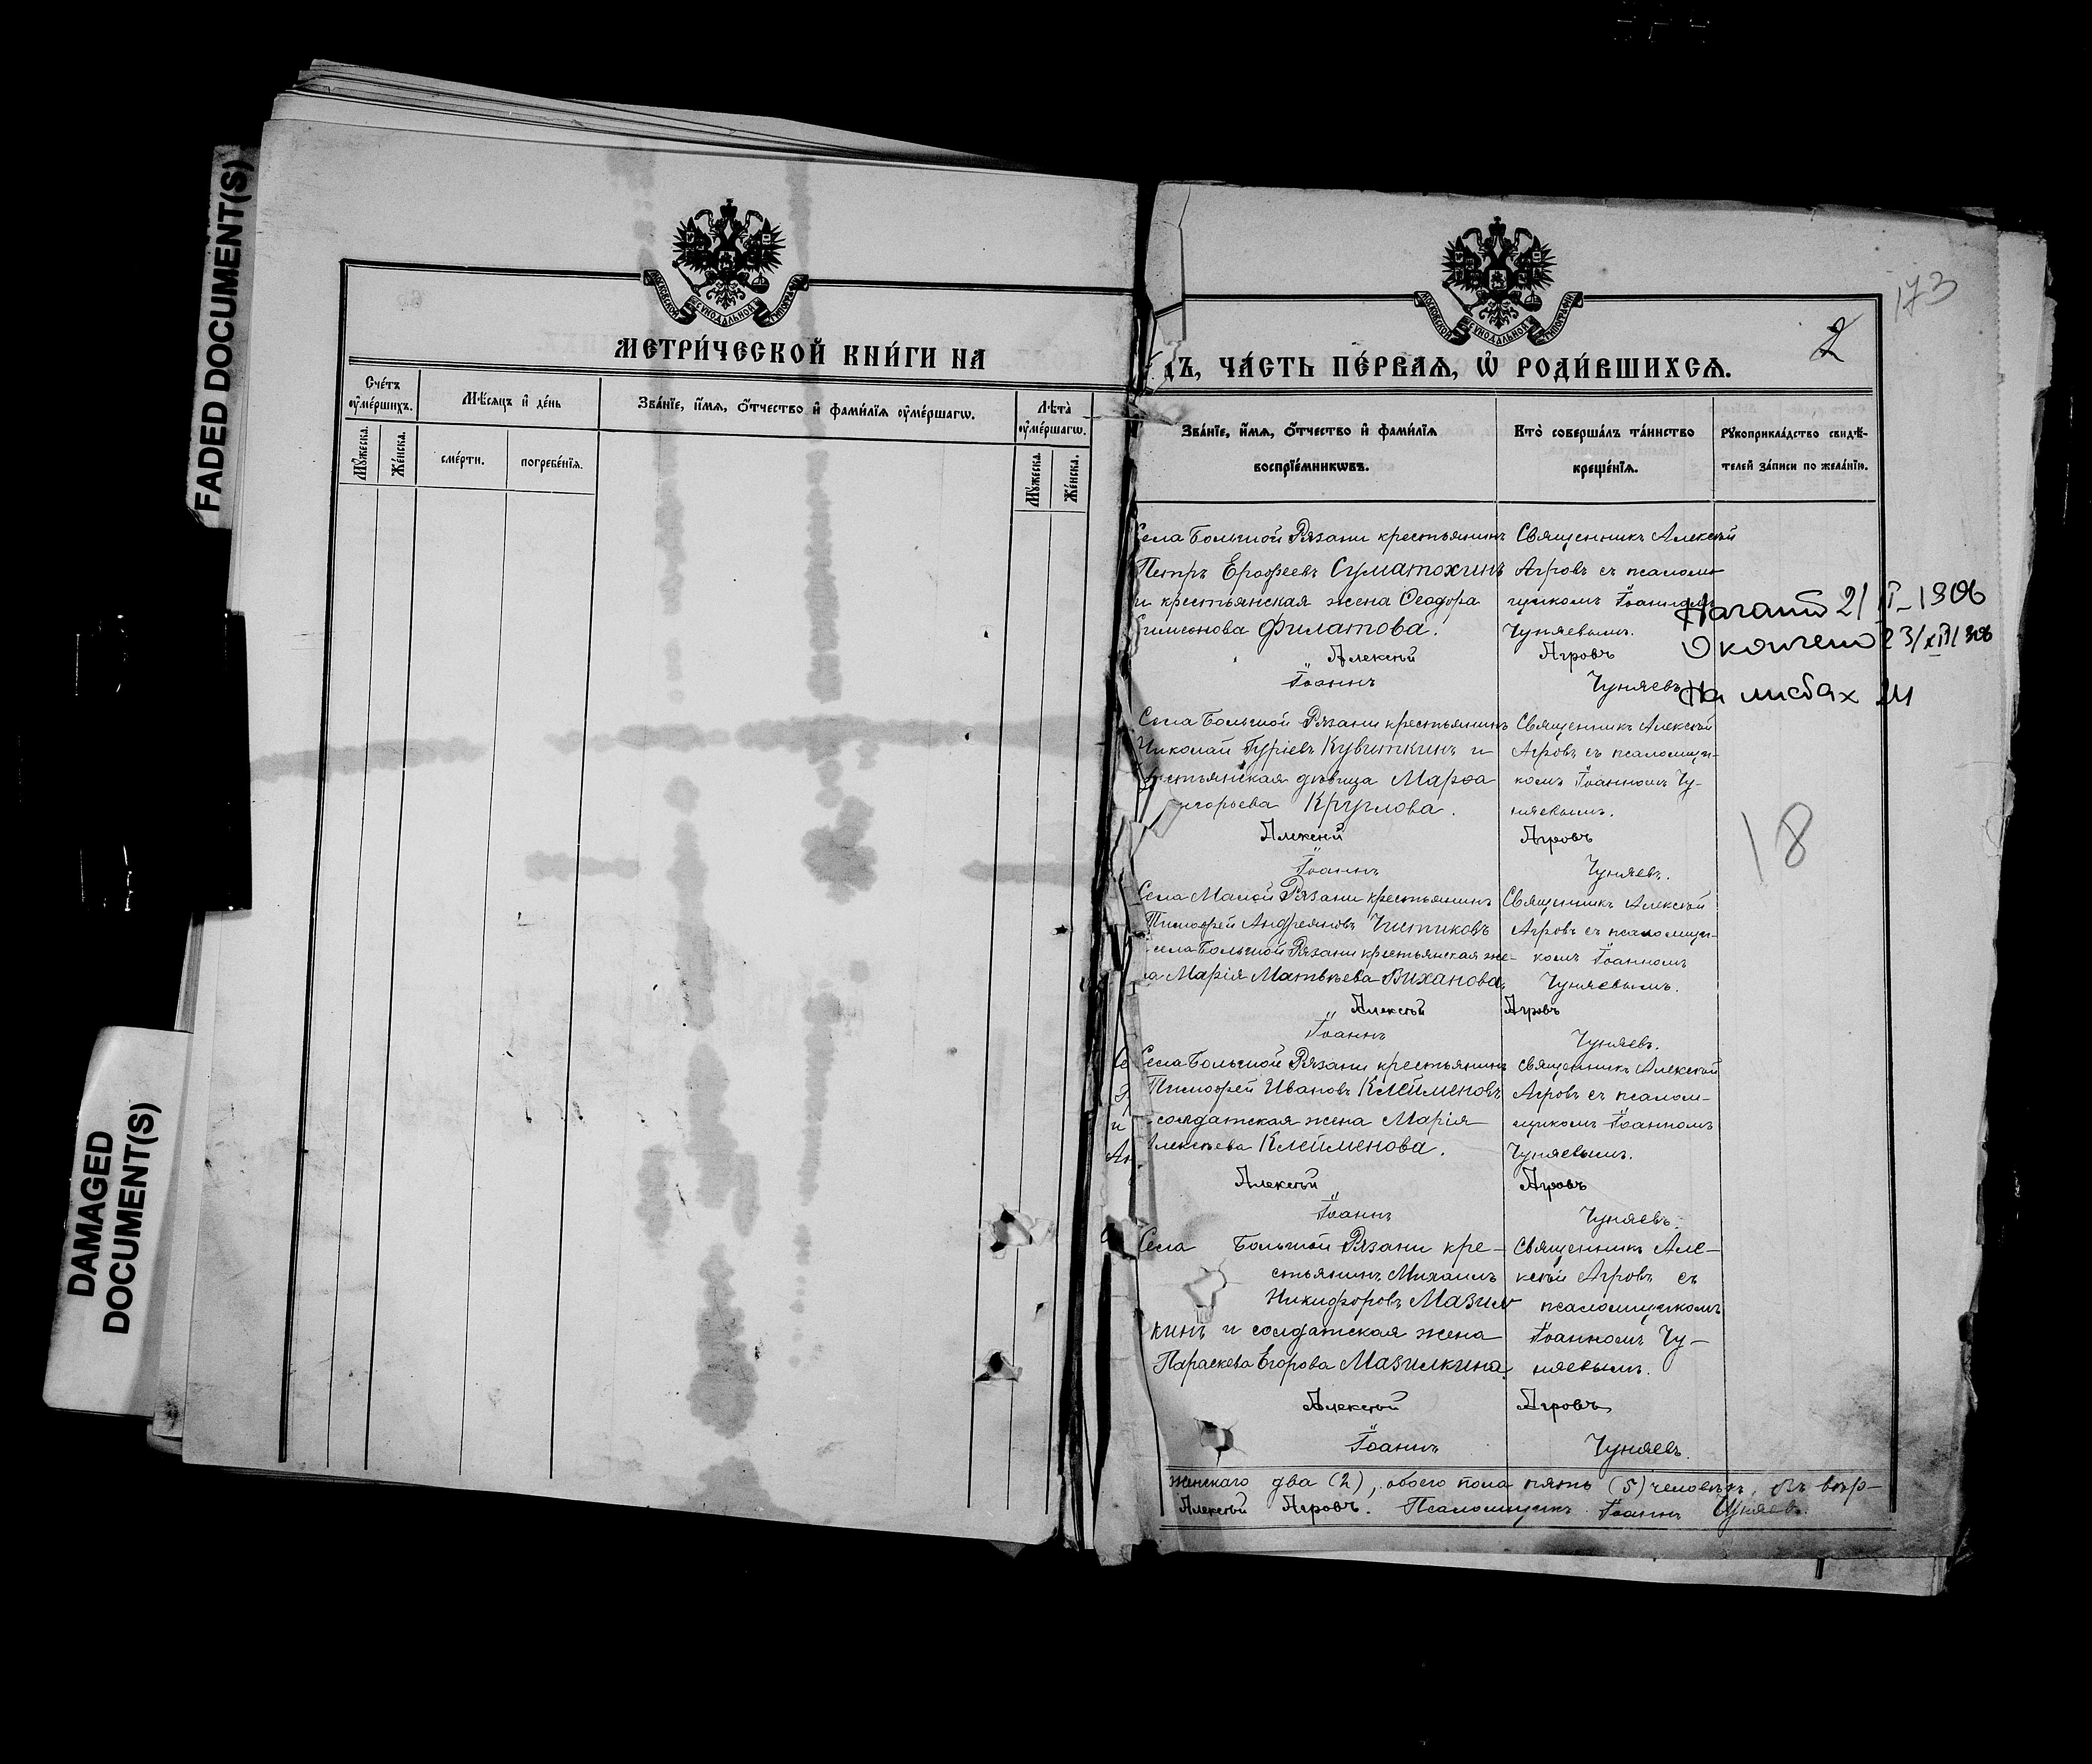 FADED DOCUMENT(S)
DAMAGED
DOCUMENT(S)
МОСКОВСКОЙ СѴНОДАЛЬНОЙ ТИПОГРАФІИ
МЕТРИ́ЧЕСКОЙ КНИ́ГИ НА
Сче́тъ ᲂу҆ме́ршихъ.
Мѣ́сяцъ и҆ де́нь
Зва́нїе, и҆́мѧ, ѻ҆́тчество и҆ фами́лїѧ ᲂу҆ме́ршагѡ.
Лѣта̀ ᲂу҆ме́ршагѡ.
Мꙋ́жеска.
Же́нска.
сме́рти.
погребе́нїѧ.
Мꙋ́жеска.
Же́нска.
173
МОСКОВСКОЙ СѴНОДАЛЬНОЙ ТИПОГРАФІИ
2
ДЪ, ЧА́СТЬ ПЕ́РВАѦ, Ѡ҆ РОДИ́ВШИХСѦ.
Зва́нїе, и҆́мѧ, ѻ҆́тчество и҆ фами́лїѧ
воспрїе́мникѡвъ.
Кто̀ соверша́лъ та́инство
креще́нїѧ.
Рꙋкоприкла́дство свидѣ́-
телей за́писи по жела́нїю.
Села Большой Рязани крестьянинъ
Петръ Ерофеевъ Суматохинъ
и крестьянская жена Ѳеодора
Симеонова Филатова.
Священникъ Алексѣй
Агровъ съ псалом-
щикомъ Іоанномъ
Чуняевымъ.
Алексѣй Агровъ
Іоаннъ Чуняевъ
Начато 21/I-1906
Окончено 23/XII/906
На листах
Села Большой Рязани крестьянинъ
Николай Гуріевъ Кувиткинъ и
крестьянская дѣвица Марѳа
Круглова.
Священникъ Алексѣй
Агровъ съ псаломщи-
комъ Іоанномъ Чу-
няевымъ.
Алексѣй Агровъ
Іоаннъ Чуняевъ.
18
Села Малой Рязани крестьянинъ
Тимоѳей Андреяновъ Чистиковъ
села Большой Рязани крестьянская же-
на Марія Матвѣева Виханова.
Священникъ Алексѣй
Агровъ съ псаломщи-
комъ Іоанномъ
Чуняевымъ.
Алексѣй Агровъ
Іоаннъ Чуняевъ.
Села Большой Рязани крестьянинъ
Тимоѳей Ивановъ Клейменовъ
солдатская жена Марія
Алексѣева Клейменова.
священникъ Алексѣй
Агровъ съ псалом-
щикомъ Іоанномъ
Чуняевымъ.
Алексѣй Агровъ
Іоаннъ Чуняевъ.
Села Большой Рязани кре-
стьянинъ Михаилъ
Никифоровъ Мазил
кинъ и солдатская жена
Параскева Егорова Мазилкина.
Священникъ Але-
ксѣй Агровъ съ
псаломщикомъ
Іоанномъ Чу-
няевымъ.
Алексѣй Агровъ
Іоаннъ Чуняевъ.
женскаго два (2), обоего пола пять (5) человѣкъ. Въ вѣр-
Алексѣй Агровъ. Псаломщикъ Іоаннъ Чуняевъ.